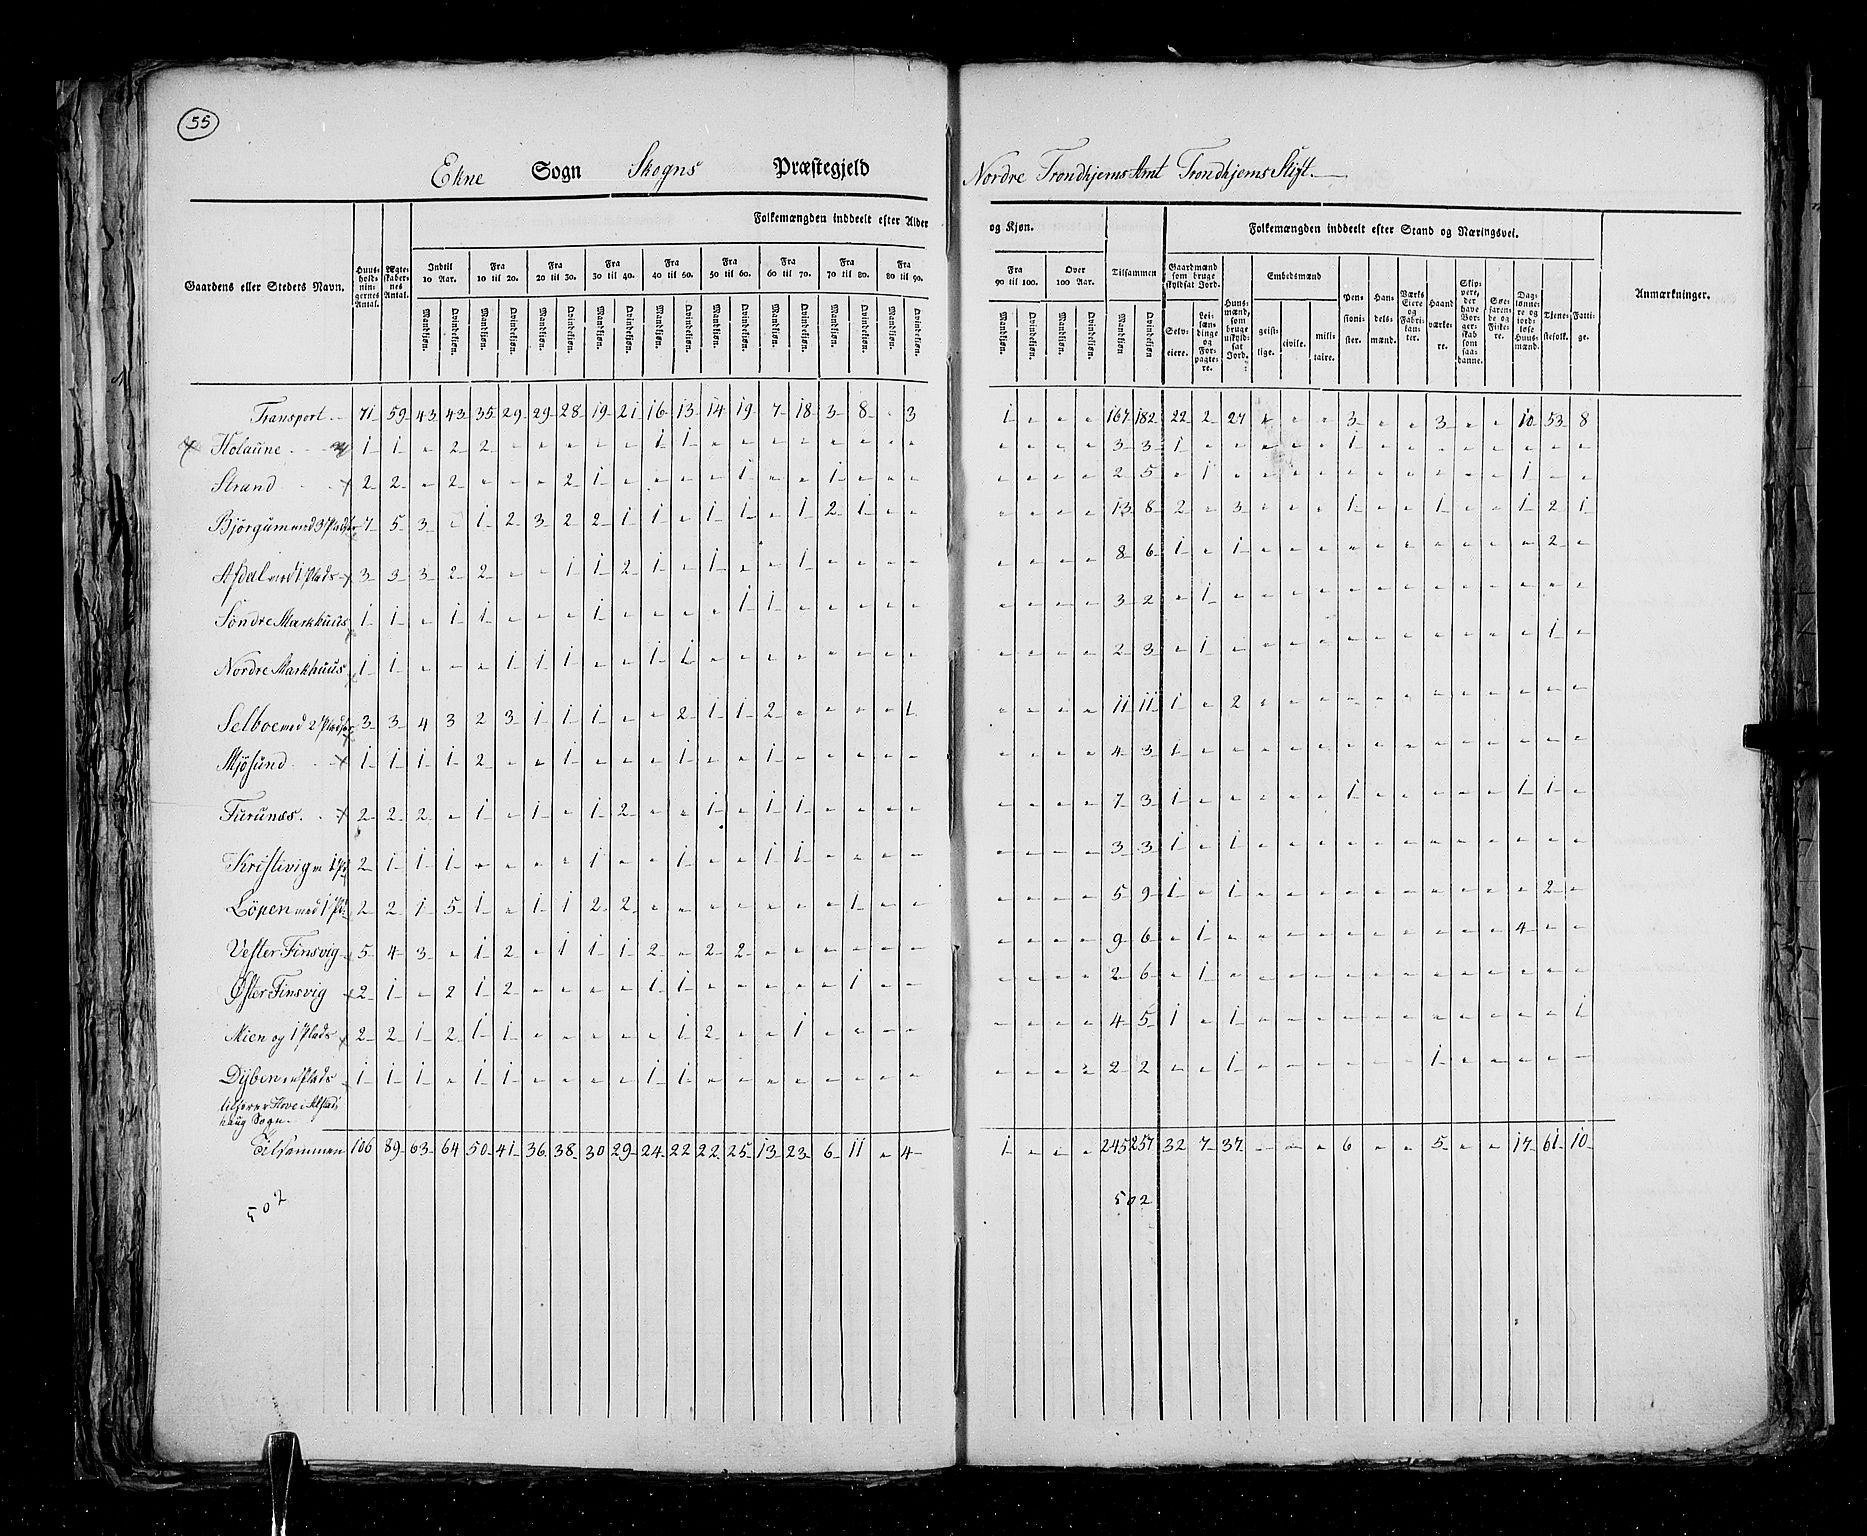 55
Ekne Sogn Skogns Præstegjeld Nordre Trondhjems Amt Trondhjems Stift.
Gaardens eller Stedets Navn. Huusholdningernes Antal. Ægteskabernes Antal. Folkemængden inddeelt efter Alder og Kjøn. Tilsammen Folkemængden inddeelt efter Stand og Næringsvei. Anmærkninger.
Indtil 10 Aar. Fra 10 til 20. Fra 20 til 30. Fra 30 til 40. Fra 40 til 50. Fra 50 til 60. Fra 60 til 70. Fra 70 til 80. Fra 80 til 90. Fra 90 til 100. Over 100 Aar. Gaardmænd som bruge skyldsat Jord. Huusmænd, som bruge uskyldsat Jord. Embedsmænd Pensionister. Handelsmænd. Værks Eiere og Fabrikanter. Haandværkere. Skippere, der have Borgerskab som saadanne. Søefarende og Fiskere. Daglønnere og jordløse Huusmænd. Tjenestefolk. Fattige.
Mandkjøn. Qvindekjøn. Mandkjøn. Qvindekjøn. Mandkjøn. Qvindekjøn. Mandkjøn. Qvindekjøn. Mandkjøn. Qvindekjøn. Mandkjøn. Qvindekjøn. Mandkjøn. Qvindekjøn. Mandkjøn. Qvindekjøn. Mandkjøn. Qvindekjøn. Mandkjøn. Qvindekjøn. Mandkjøn. Qvindekjøn. Mandkjøn Qvindekjøn Selveiere. Leilændinge og Forpagtere. geistlige. civile. militaire.
Transport 71 59 43 43 35 29 29 28 19 21 16 13 14 19 7 18 3 8 - 3 1 - - - 167 182 22 2 27 - - - 3 - - 3 - - 10 53 8
Holaune 1 1 - 2 2 - - - - - 1 1 - - - - - - - - - - - - 3 3 1 - - - - - 1 - - - - - - - -
Strand 2 2 - 2 - - - 2 1 - - - - 1 - - 1 - - - - - - - 2 5 - 1 - - - - - - - - - - 1 - -
Bjørgum med 3 Pladser 7 5 3 - 1 2 3 2 2 1 1 - 1 1 - 1 2 1 - - - - - - 13 8 2 - 3 - - - 1 - - 1 - - 1 2 1
Afdal med 1 Plads 3 3 3 2 2 - - 1 1 2 1 - 1 - - 1 - - - - - - - - 8 6 1 - 1 - - - - - - - - - - 2 -
Søndre Markhuus 1 1 - 1 1 - - - 1 - - - - 1 1 - - - - - - - - - 3 2 - 1 - - - - - - - - - - - - -
Nordre Markhuus 1 1 - - - 1 1 1 - - 1 1 - - - - - - - - - - - - 2 3 - 1 - - - - - - - - - - - 1 -
Selboe med 2 Pladser 3 3 4 3 2 3 1 1 1 - - 2 1 1 2 - - - - 1 - - - - 11 11 1 - 2 - - - - - - - - - - - -
Mjøsund 1 1 1 1 2 - - 1 - - - 1 - - 1 - - - - - - - - - 4 3 1 - - - - - - - - - - - - - -
Furunæs 2 2 2 - 1 - 1 - 1 2 - - 1 - 1 1 - - - - - - - - 7 3 1 - - - - - 1 - - - - - 1 1 -
Kristivig m 1 Pl 2 1 1 1 - - - - 1 - - 1 - - 1 1 - - - - - - - - 3 3 1 - 1 - - - - - - - - - - - -
Löpen med 1 Pl. 2 2 1 5 1 - 1 1 2 2 - - - - - - - 1 - - - - - - 5 9 1 - 1 - - - - - - - - - - 2 -
Vester Finsvig 5 4 3 - 1 2 - 1 1 1 2 - 2 2 - - - - - - - - - - 9 6 - 1 - - - - - - - - - - 4 - -
Øster Finsvig 2 1 - 2 1 2 - - - - 1 1 - - - - - 1 - - - - - - 2 6 - 1 - - - - - - - - - - - - -
Mien og 1 Plads 2 2 1 2 1 1 - - - - - 1 2 - - 1 - - - - - - - - 4 5 1 - 1 - - - - - - - - - - - 1
Dyben Plads 1 1 1 - 1 1 - - - - 1 1 - - - - - - - - - - - - 2 2 - - 1 - - - - - - 1 - - - - -
tilhører Hove i Alstad
haug Sogn.
Tilsammen 106 89 63 64 50 41 36 38 30 29 24 22 22 25 13 23 6 11 - 4 1 - - - 245 257 32 7 37 - - - 6 - - 5 - - 17 61 10
502 502